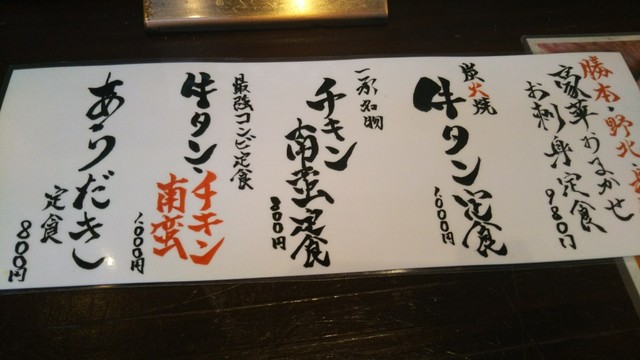 勝本・野北
豪華おまかせ
お刺身定食
980円
炭火焼
牛タン定食
1,000円
名物
チキン
南蛮定食
800円
最強コンビ定食
牛タン・チキン
南蛮
1,000円
あらだき
定食
800円